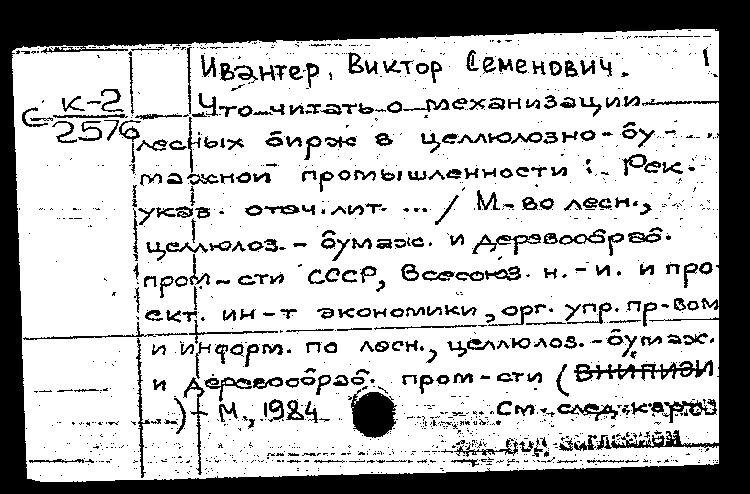 Ивантер, Виктор Семенович. 1
С К-2
2576
Что читать о механизации
лесных бирж в целлюлозно-бу-
мажной промышленности : Рек.
указ. отеч. лит. ... / М-во лесн.,
целлюлоз.-бумаж. и деревообраб.
пром-сти СССР, Всесоюз. н.-и. и про
ект. ин-т экономики, орг. упр. пр-вом
и информ. по лесн., целлюлоз.-бумаж.
и деревообраб. пром-сти (ВНИПИЭИ
) - М., 1984
См. след. карт
под заглавием